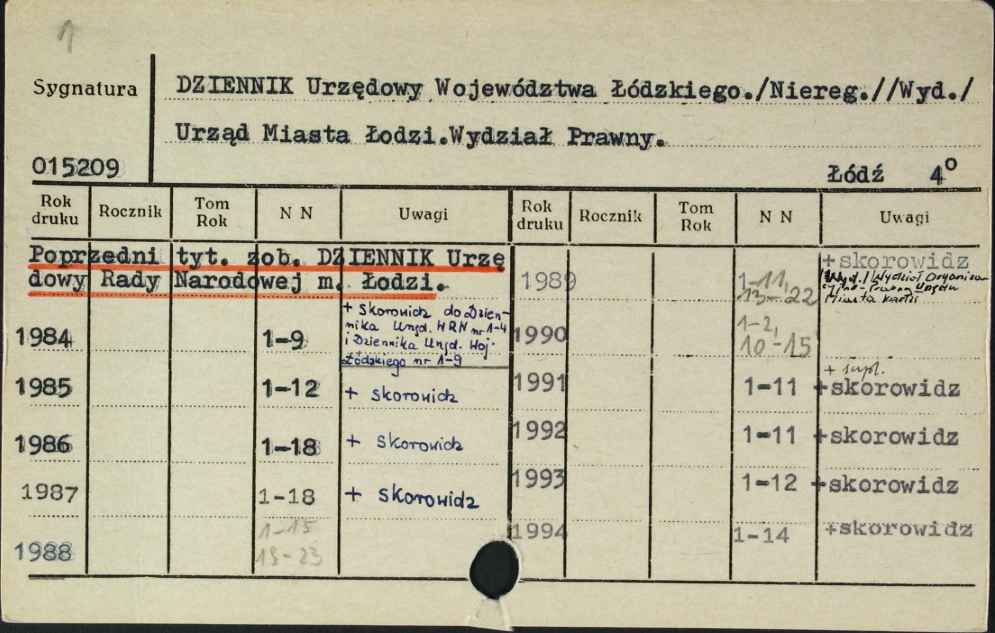 1
Sygnatura
DZIENNIK Urzędowy Województwa Łódzkiego./Niereg.//Wyd./
Urząd Miasta Łodzi.Wydział Prawny.
015209
Łódź 4°
Rok druku Rocznik Tom Rok N N Uwagi Rok druku Rocznik Tom Rok N N Uwagi
Poprzedni tyt. zob. DZIENNIK Urzę
dowy Rady Narodowej m. Łodzi.
1984 1-9 + Skorowidz do Dzien-
nika Urzęd. WRN nr 1-4
i Dziennika Urzęd. Woj.
Łódzkiego nr 1-9
1985 1-12 + skorowidz
1986 1-18 + skorowidz
1987 1-18 + skorowidz
1988 1-15
23
1989 1-11, +skorowidz
13-22 Wydział Organiza
Miasta
1990 1-2,
10-15
1991 1-11 + supl.
+skorowidz
1992 1-11 +skorowidz
1993 1-12 +skorowidz
1994 1-14 +skorowidz